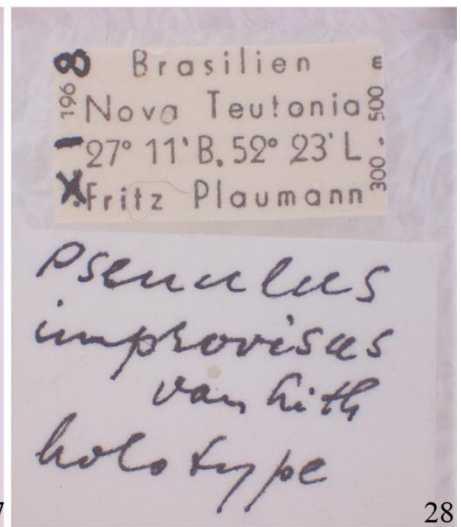 8
196
Brasilien
Nova Teutonia
27° 11' B. 52° 23' L
Fritz Plaumann
I
X
300 . 500 m
Psenulus
improvisus
van Lith
holotype
7
28